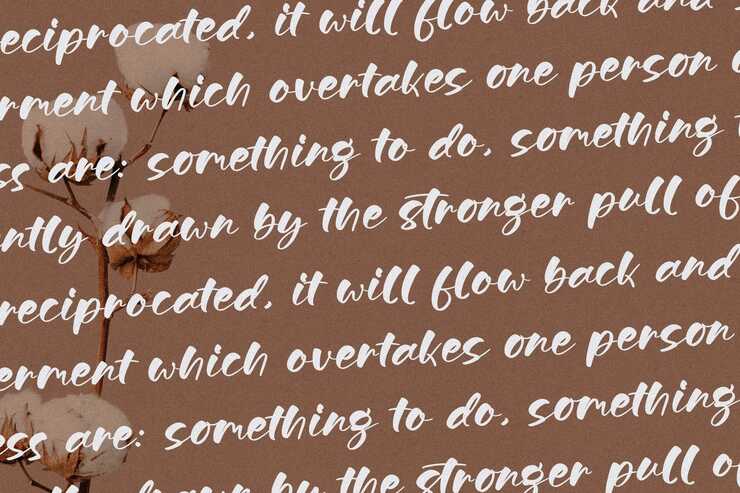 reciprocated, it will flow back and
erment which overtakes one person
ss are: something to do, something
ently drawn by the stronger pull of
reciprocated, it will flow back and
erment which overtakes one person
ess are: something to do, something
drawn by the stronger pull of